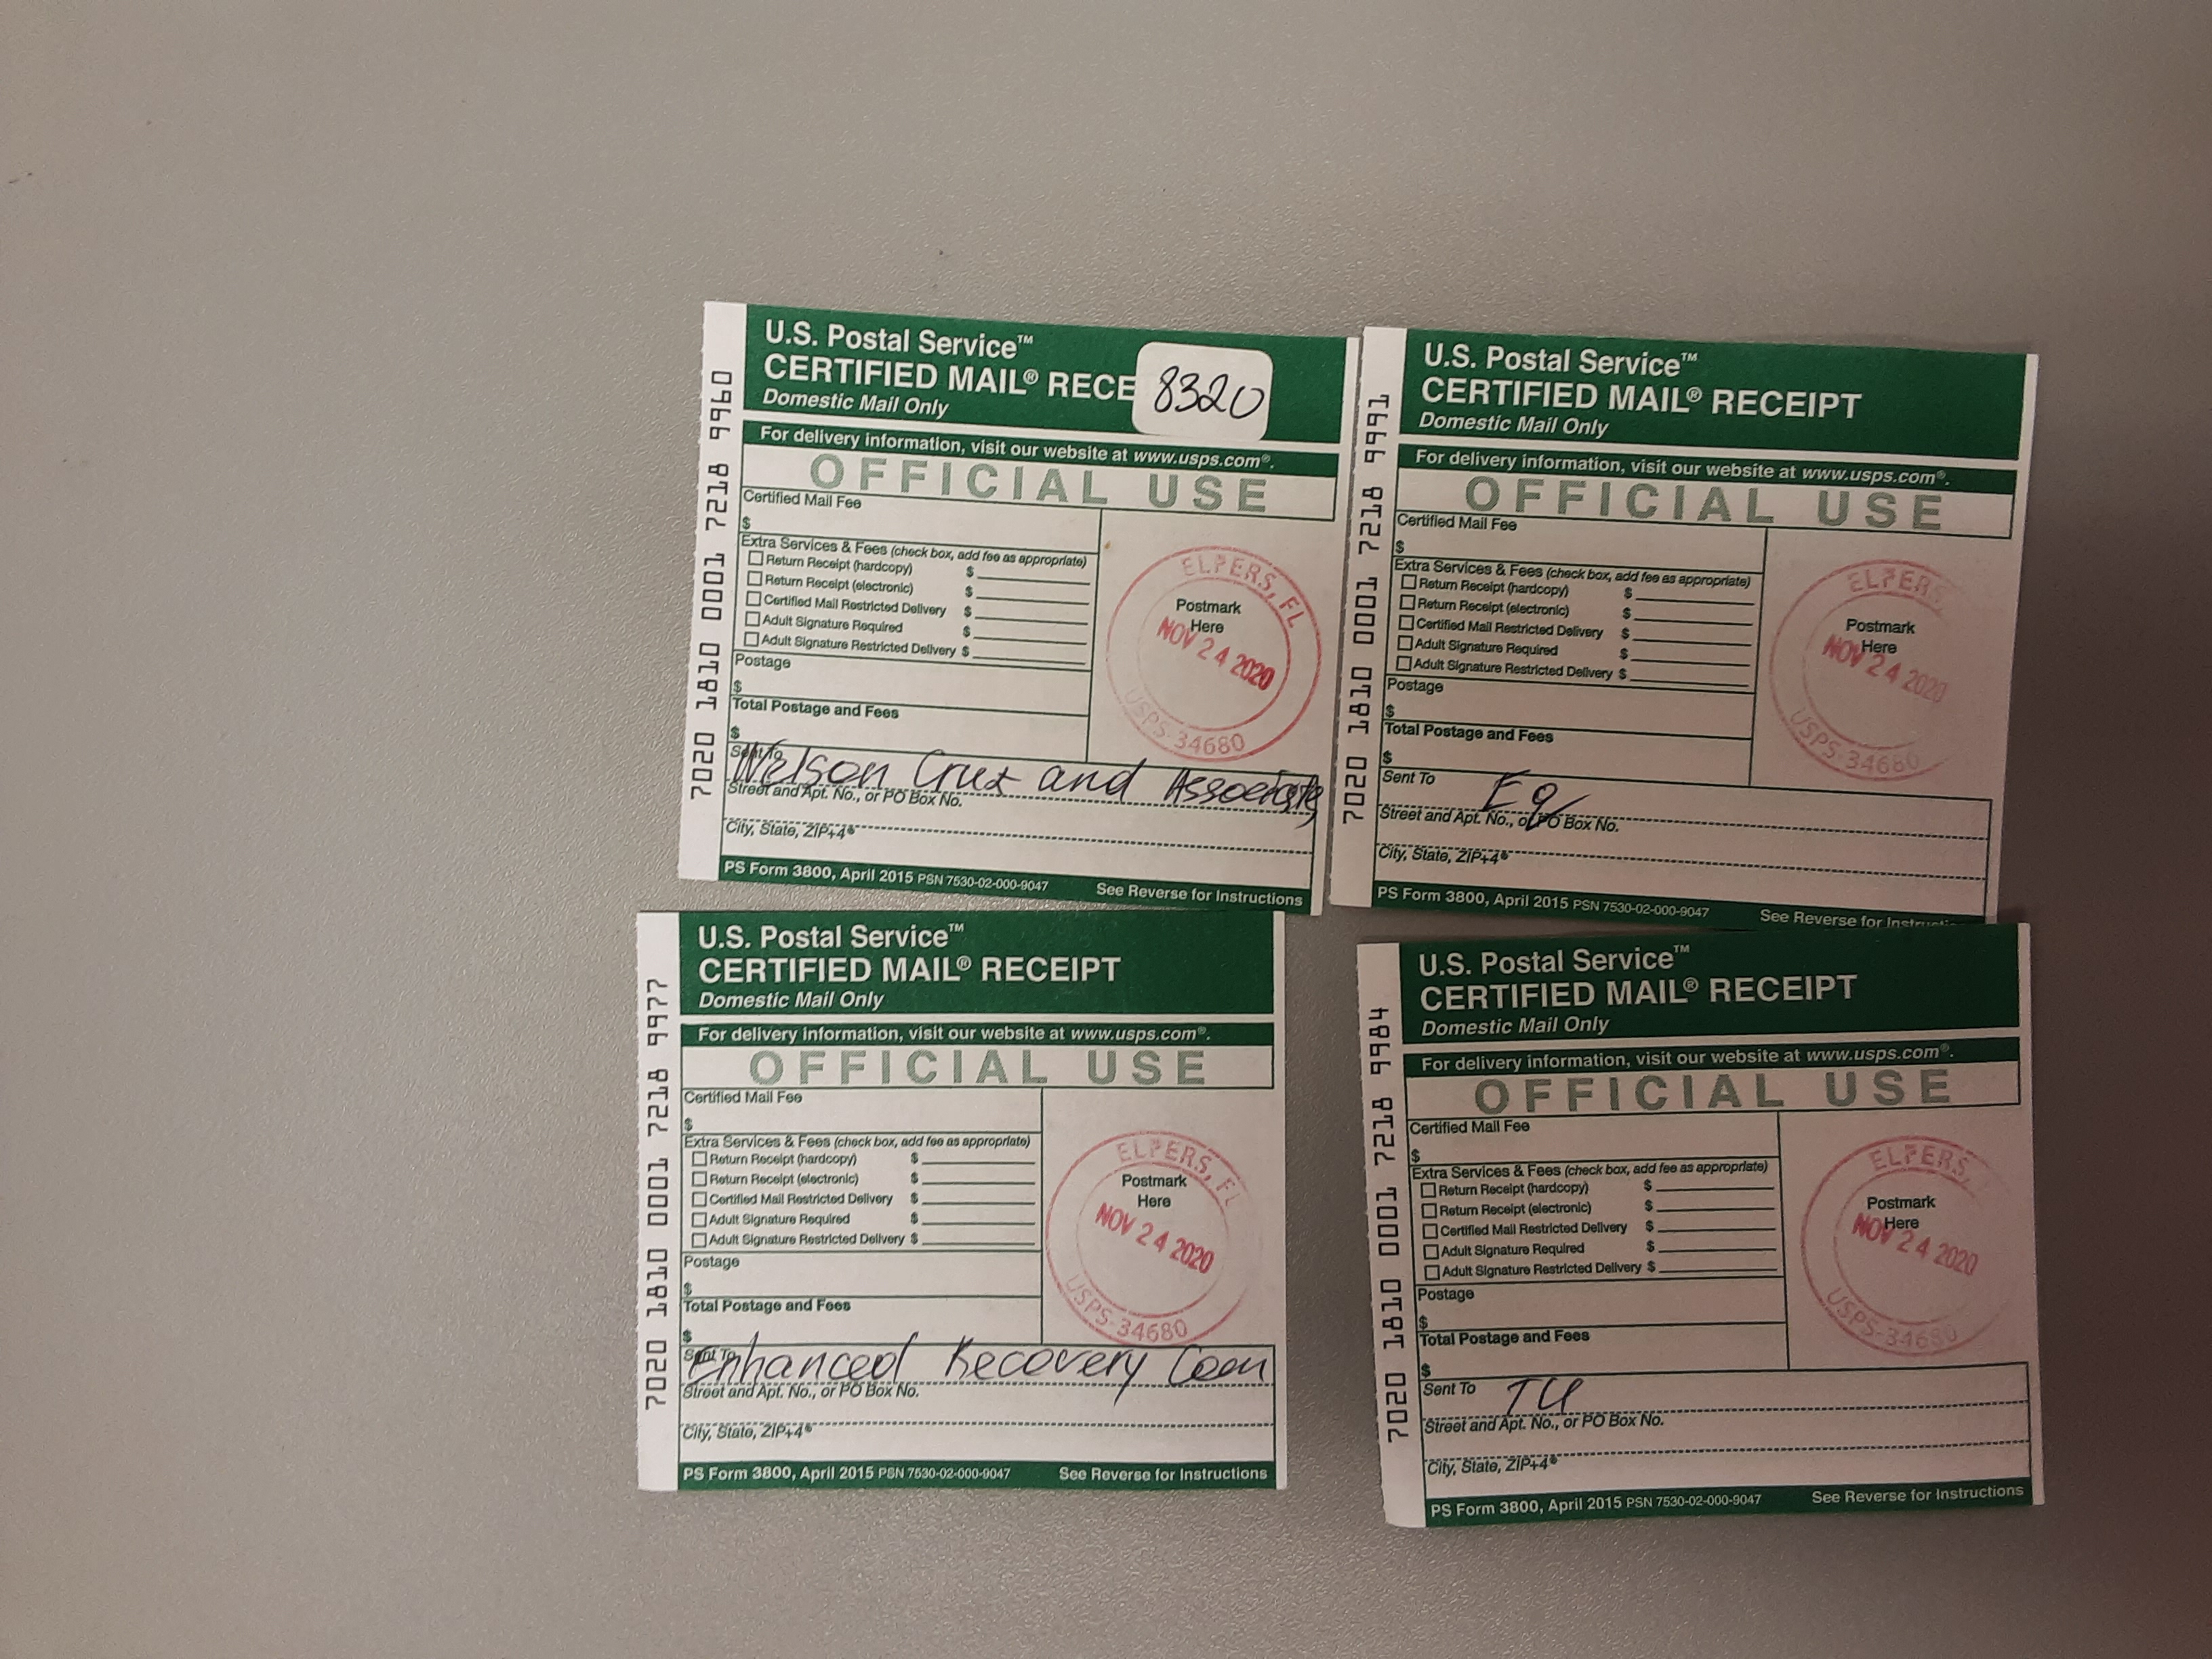 7020 1810 0001 7218 9977
U.S. Postal Service™
CERTIFIED MAIL® RECEIPT
Domestic Mail Only
For delivery information, visit our website at www.usps.com®.
OFFICIAL USE
Certified Mail Fee
$
Extra Services & Fees (check box, add fee as appropriate)
Return Receipt (hardcopy) $
Return Receipt (electronic) $
Certified Mail Restricted Delivery $
Adult Signature Required $
Adult Signature Restricted Delivery $
Postage
$
Total Postage and Fees
$
Postmark
Here
ELFERS, FL
NOV 24 2020
USPS 34680
Sent To
Enhanced Recovery
Street and Apt. No., or PO Box No.
City, State, ZIP+4®
PS Form 3800, April 2015 PSN 7530-02-000-9047 See Reverse for Instructions
7020 1810 0001 7218 9960
U.S. Postal Service™
CERTIFIED MAIL® RECE
8320
Domestic Mail Only
For delivery information, visit our website at www.usps.com®.
OFFICIAL USE
Certified Mail Fee
$
Extra Services & Fees (check box, add fee as appropriate)
Return Receipt (hardcopy) $
Return Receipt (electronic) $
Certified Mail Restricted Delivery $
Adult Signature Required $
Adult Signature Restricted Delivery $
Postage
$
Total Postage and Fees
$
Postmark
Here
ELFERS, FL
NOV 24 2020
USPS 34680
Sent To
and
Street and Apt. No., or PO Box No.
City, State, ZIP+4®
PS Form 3800, April 2015 PSN 7530-02-000-9047 See Reverse for Instructions
7020 1810 0001 7218 9984
U.S. Postal Service™
CERTIFIED MAIL® RECEIPT
Domestic Mail Only
For delivery information, visit our website at www.usps.com®.
OFFICIAL USE
Certified Mail Fee
$
Extra Services & Fees (check box, add fee as appropriate)
Return Receipt (hardcopy) $
Return Receipt (electronic) $
Certified Mail Restricted Delivery $
Adult Signature Required $
Adult Signature Restricted Delivery $
Postage
$
Total Postage and Fees
$
Postmark
Here
ELFERS
NOV 24 2020
USPS 34680
Sent To
Street and Apt. No., or PO Box No.
City, State, ZIP+4®
PS Form 3800, April 2015 PSN 7530-02-000-9047 See Reverse for Instructions
7020 1810 0001 7218 9991
U.S. Postal Service™
CERTIFIED MAIL® RECEIPT
Domestic Mail Only
For delivery information, visit our website at www.usps.com®.
OFFICIAL USE
Certified Mail Fee
$
Extra Services & Fees (check box, add fee as appropriate)
Return Receipt (hardcopy) $
Return Receipt (electronic) $
Certified Mail Restricted Delivery $
Adult Signature Required $
Adult Signature Restricted Delivery $
Postage
$
Total Postage and Fees
$
Postmark
Here
ELFERS
NOV 24 2020
USPS 34680
Sent To
Street and Apt. No., or PO Box No.
City, State, ZIP+4®
PS Form 3800, April 2015 PSN 7530-02-000-9047 See Reverse for Instructions